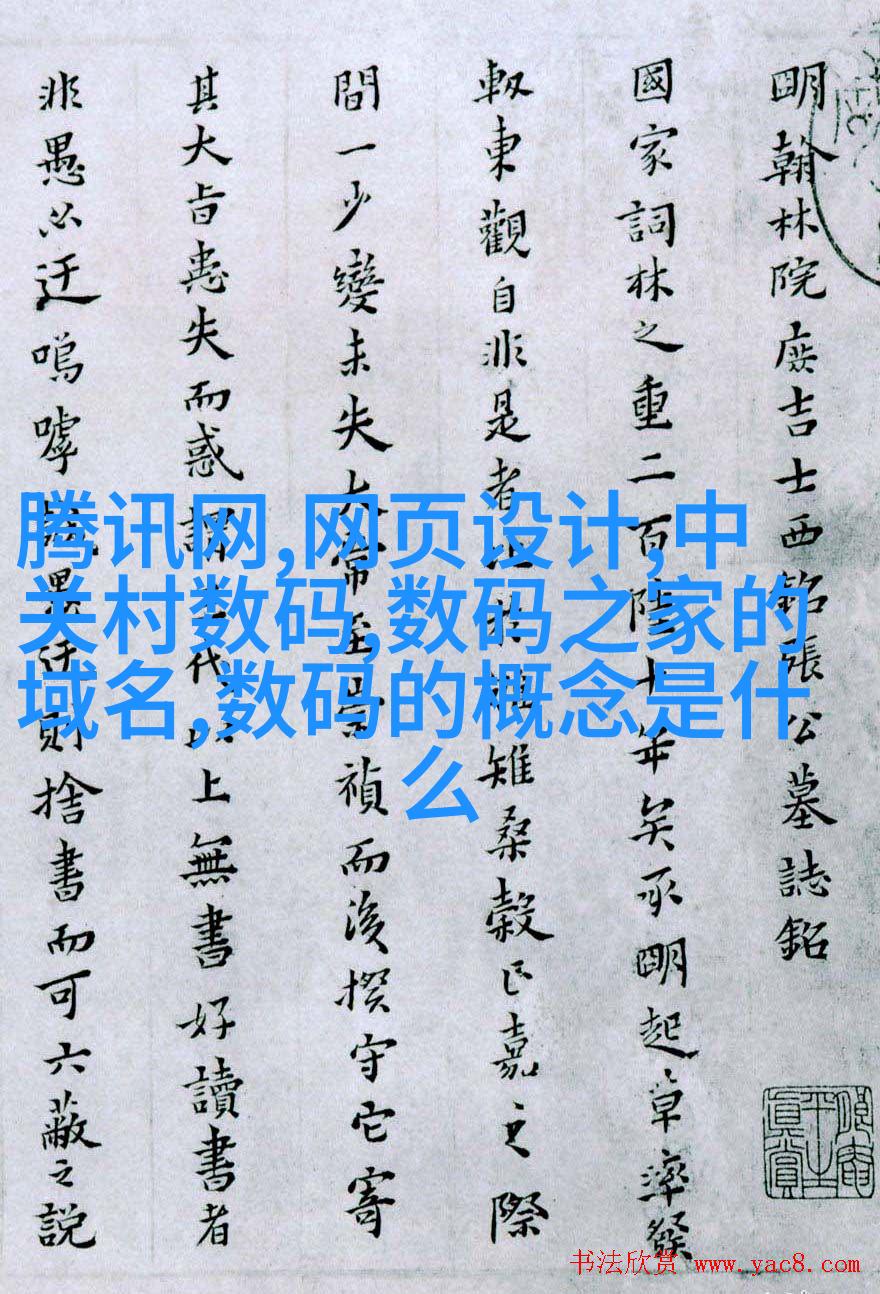 明翰林院庶吉士西銘張公墓誌銘
國家詞林之重二百陸十年矣承明起草率發
軔東觀自非是者雉桑穀亡嘉之際
間一少變未失大常至禎而後揆守它寄
其大旨恚失而惑謂以上無書好讀書者
非愚必迂嗚嘑愚迂則捨書而可六蔽之説
腾讯网,网页设计,中
关村数码,数码之家的
域名,数码的概念是什
么
书法欣赏 www.yac8.com